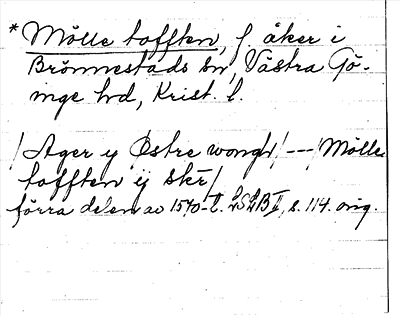 * Mölle tofften, f. åker i
Brönnestads sn, Västra Gö-
inge hd, Krist. l.
/Ager y Østre wongh/ --- /Mölle
tofften ij skr/
förra delen av 1570-t. LSLB II, s. 114. orig.